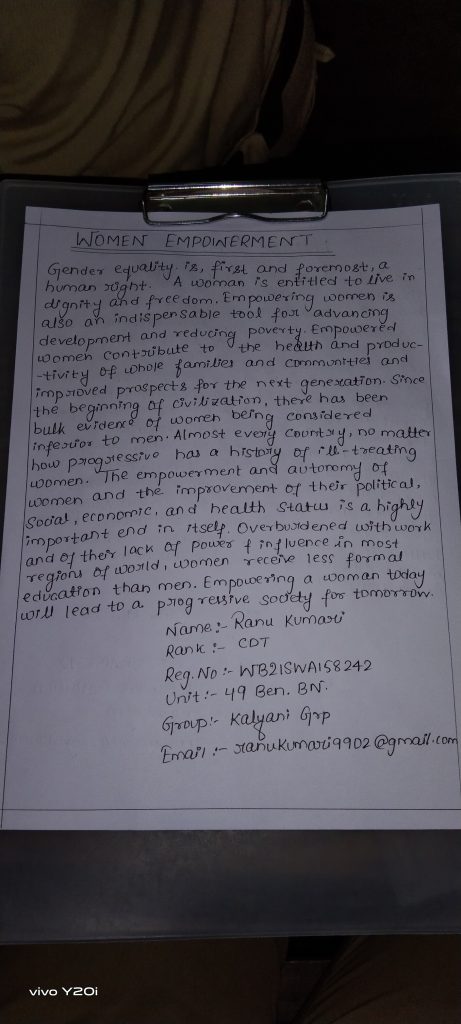 WOMEN EMPOWERMENT.
Gender equality is, first and foremost, a
human right. A woman is entitled to live in
dignity and freedom. Empowering women is
also an indispensable tool for advancing
development and reducing poverty. Empowered
women contribute to the health and produc-
-tivity of whole families and communities and
improved prospects for the next generation. Since
the beginning of civilization, there has been
bulk evidence of women being considered
inferior to men. Almost every country, no matter
how progressive has a history of ill-treating
women. The empowerment and autonomy of
women and the improvement of their political,
social, economic, and health status is a highly
important end in itself. Overburdened with work
and of their lack of power & influence in most
regions of world, women receive less formal
education than men. Empowering a woman today
will lead to a progressive society for tomorrow.
Name:- Ranu Kumari
Rank :- CDT
Reg. No :- WB21SWA158242
Unit :- 49 Ben. BN.
Group:- Kalyani Grp
Email :- ranukumari9902@gmail.com
vivo Y20i